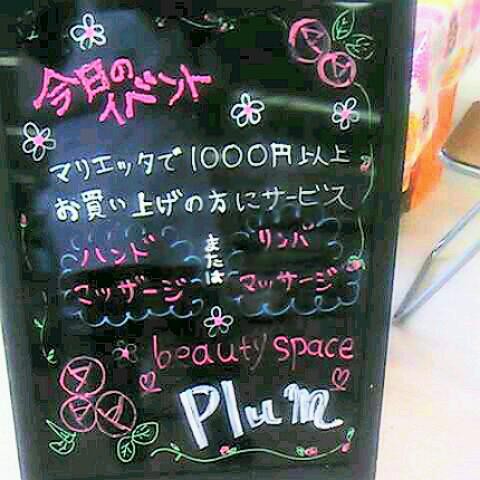 今日の
イベント
マリエッタで1000円以上
お買い上げの方にサービス
ハンド
マッザージ
または
リンパ
マッサージ
beauty space
Plum